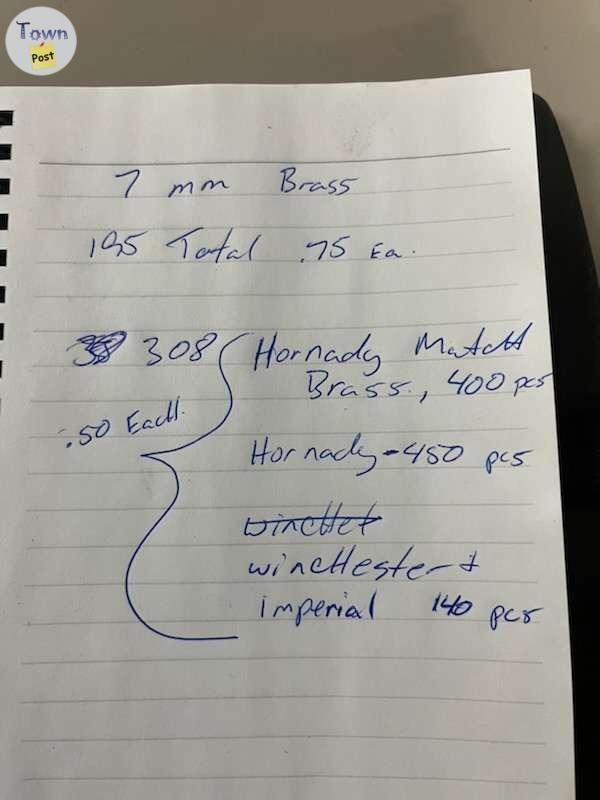 Town
Post
7 mm Brass
195 Total .75 Ea.
308 Hornady Match
Brass, 400 pcs
.50 Each.
Hornady - 450 pcs
winchet
winchester +
imperial 140 pcs